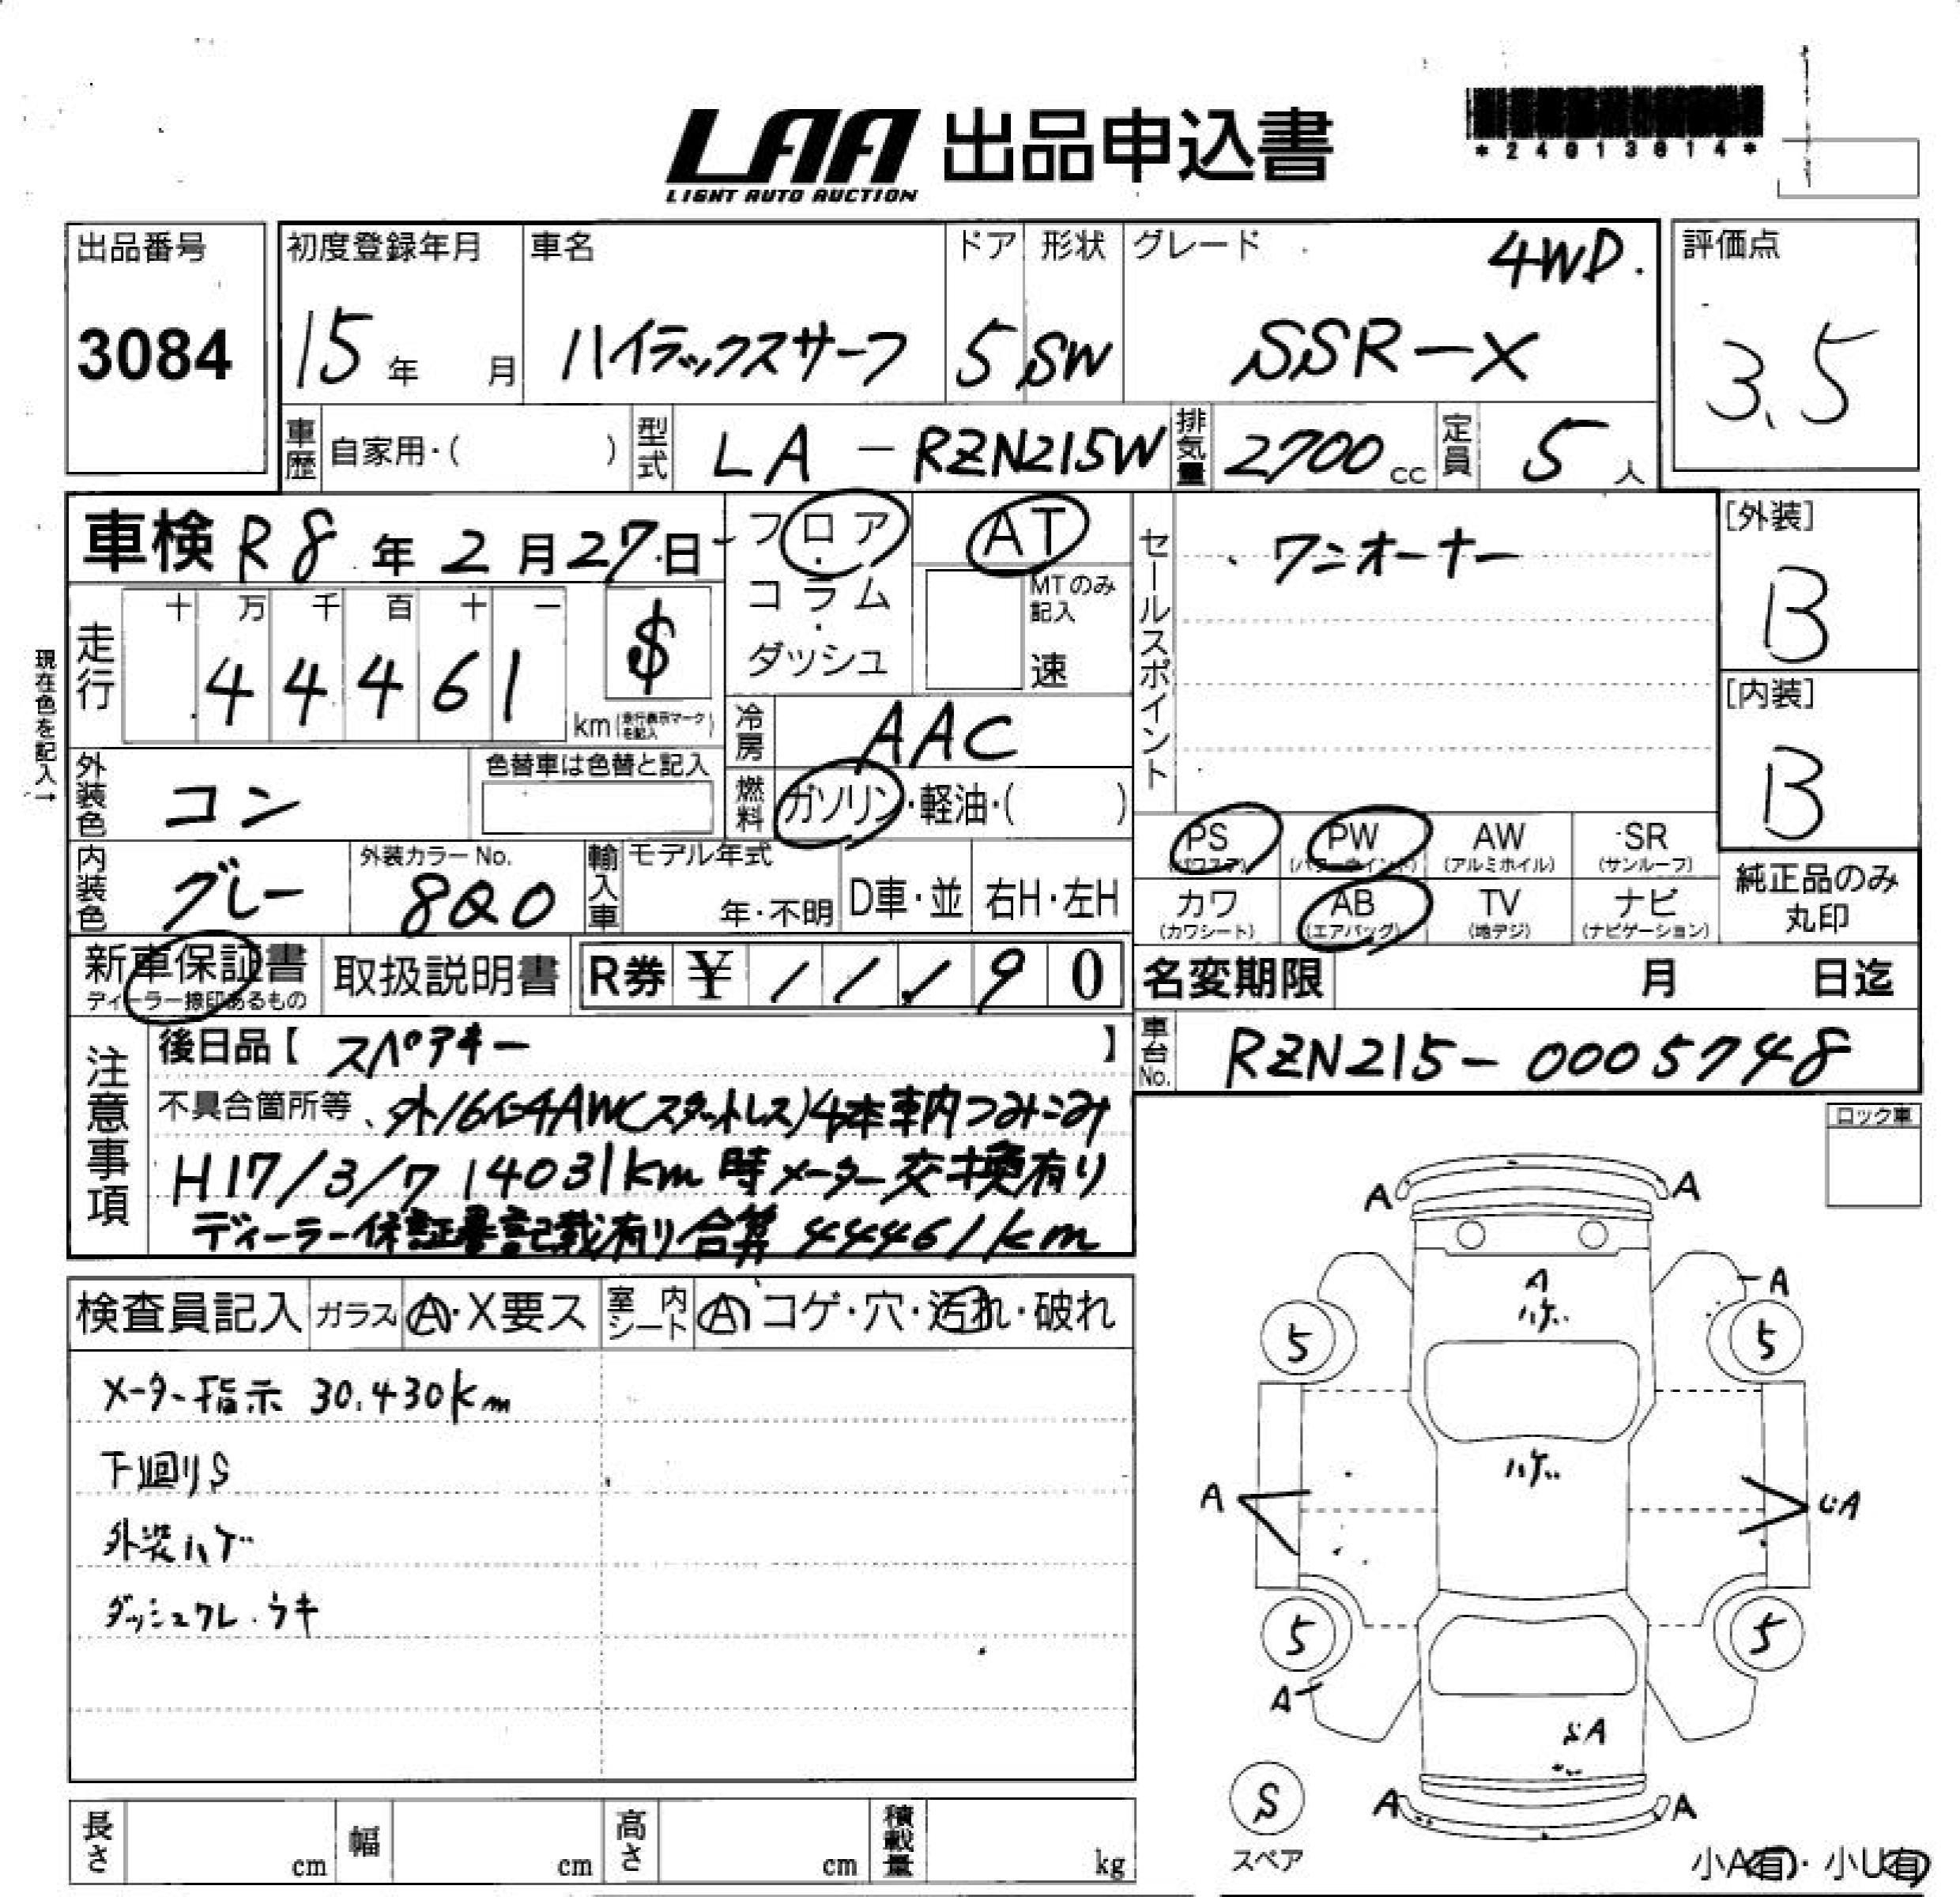 LAA 出品申込書
LIGHT AUTO AUCTION
*24013014*
出品番号
3084
初度登録年月
15年 月
車名
ハイラックスサーフ
ドア
5
形状
SW
グレード
4WD.
SSR-X
評価点
3.5
車歴 自家用・( )
型式 LA-RZN215W
排気量 2700cc
定員 5人
車検 R8年2月27日
フロア
コラム
ダッシュ
AT
MTのみ記入
速
セールスポイント
ワンオーナー
[外装]
B
[内装]
B
現在色を記入→
走行
十 万 千 百 十 一
4 4 4 6 1
km(走行表示マークを記入)
$
冷房 AAC
燃料 ガソリン・軽油・( )
外装色 コン
色替車は色替と記入
内装色 グレー
外装カラーNo.
8Q0
輸入車
モデル年式
年・不明
D車・並
右H・左H
PS (パワステ)
PW (パワーウインド)
AW (アルミホイル)
SR (サンルーフ)
カワ (カワシート)
AB (エアバッグ)
TV (地デジ)
ナビ (ナビゲーション)
純正品のみ
丸印
新車保証書
ディーラー捺印あるもの
取扱説明書
R券 ¥ 11,90
名変期限 月 日迄
車台No. RZN215-0005748
注意事項
後日品【 スペアキー 】
不具合箇所等、外16インチAW(スタットレス)4本車内つみこみ
H17/3/7 14031km時メーター交換有り
ディーラー保証書記載有り合算44461km
ロック車
検査員記入
ガラス A・X要ス
室内シート A コゲ・穴・汚れ・破れ
メーター指示 30.430km
下廻りS
外装ハゲ
ダッシュワレ.ウキ
A A
A
ハゲ
A
5 5
ハゲ
A
UA
5 5
A
UA
S
スペア
A A
小A有・小U有
長さ cm
幅 cm
高さ cm
積載量 kg